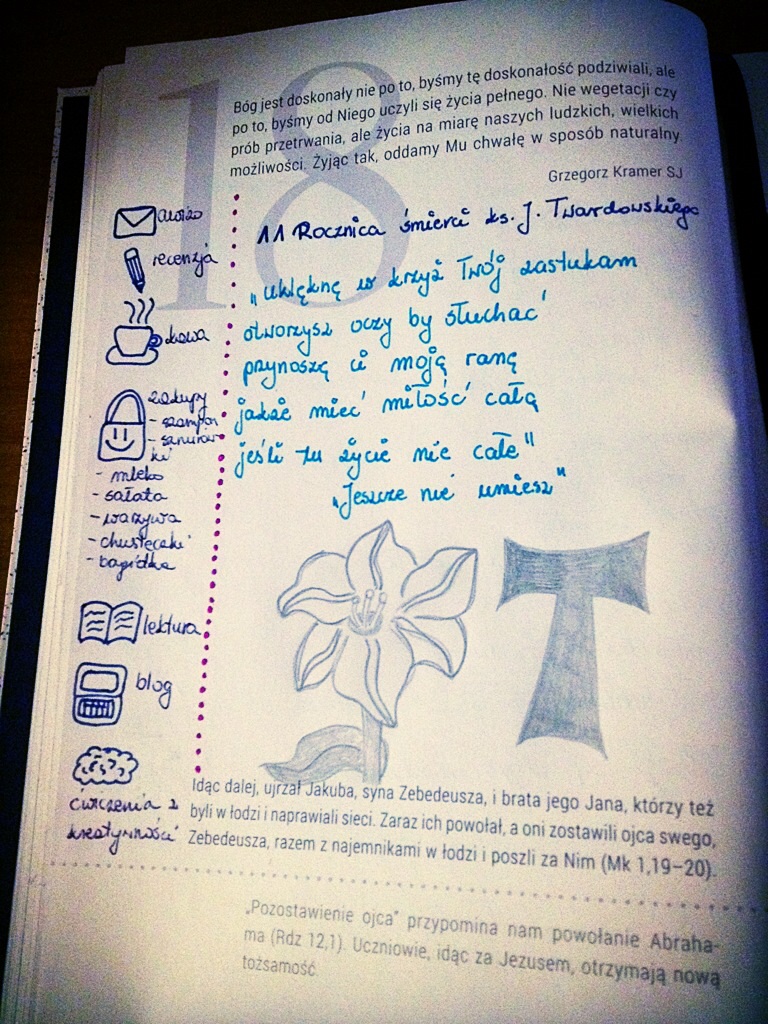 18
Bóg jest doskonały nie po to, byśmy tę doskonałość podziwiali, ale
po to, byśmy od Niego uczyli się życia pełnego. Nie wegetacji czy
prób przetrwania, ale życia na miarę naszych ludzkich, wielkich
możliwości. Żyjąc tak, oddamy Mu chwałę w sposób naturalny.
Grzegorz Kramer SJ
11 Rocznica śmierci ks. J. Twardowskiego
„uklęknę w krzyż Twój zastukam
otworzysz oczy by słuchać
przynoszę ci moją ranę
jakże mieć miłość całą
jeśli tu życie nie całe"
„Jeszcze nie umiesz"
recenzja
kawa
zakupy
- szampon
- sznurów
ki
- mleko
- sałata
- warzywa
- chusteczki
- bagietka
lektura
blog
ćwiczenia z
kreatywności
Idąc dalej, ujrzał Jakuba, syna Zebedeusza, i brata jego Jana, którzy też
byli w łodzi i naprawiali sieci. Zaraz ich powołał, a oni zostawili ojca swego,
Zebedeusza, razem z najemnikami w łodzi i poszli za Nim (Mk 1,19–20).
„Pozostawienie ojca" przypomina nam powołanie Abraha-
ma (Rdz 12,1). Uczniowie, idąc za Jezusem, otrzymają nową
tożsamość.